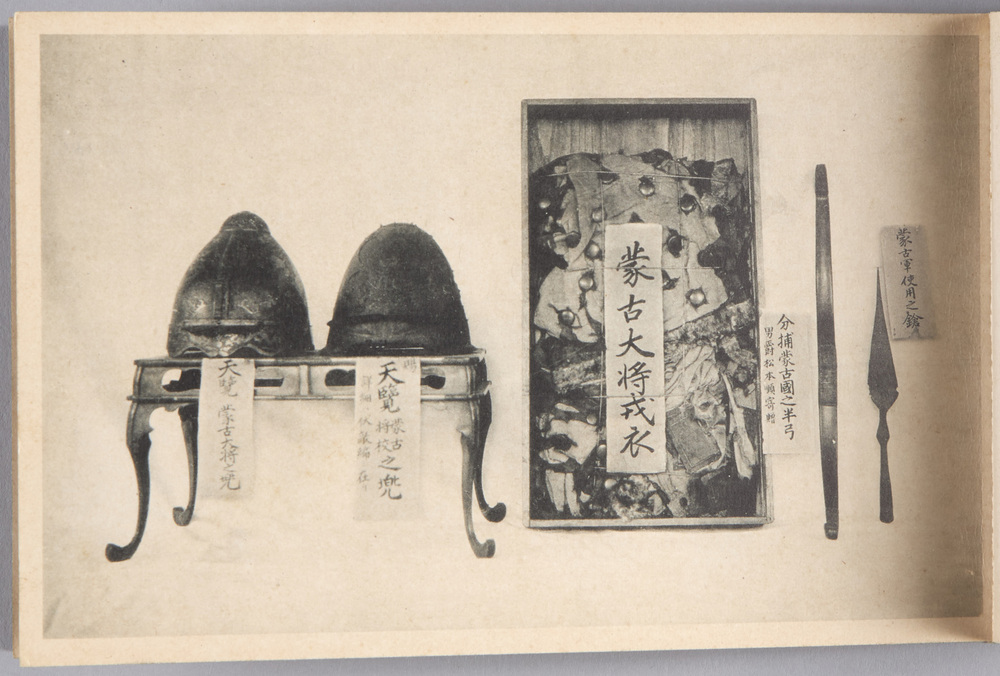 蒙古軍使用之鎗
分捕蒙古國之半弓
男爵松本順寄贈
蒙古大将戎衣
天覽
蒙古
将校之兜
天覽
蒙古大将之兜